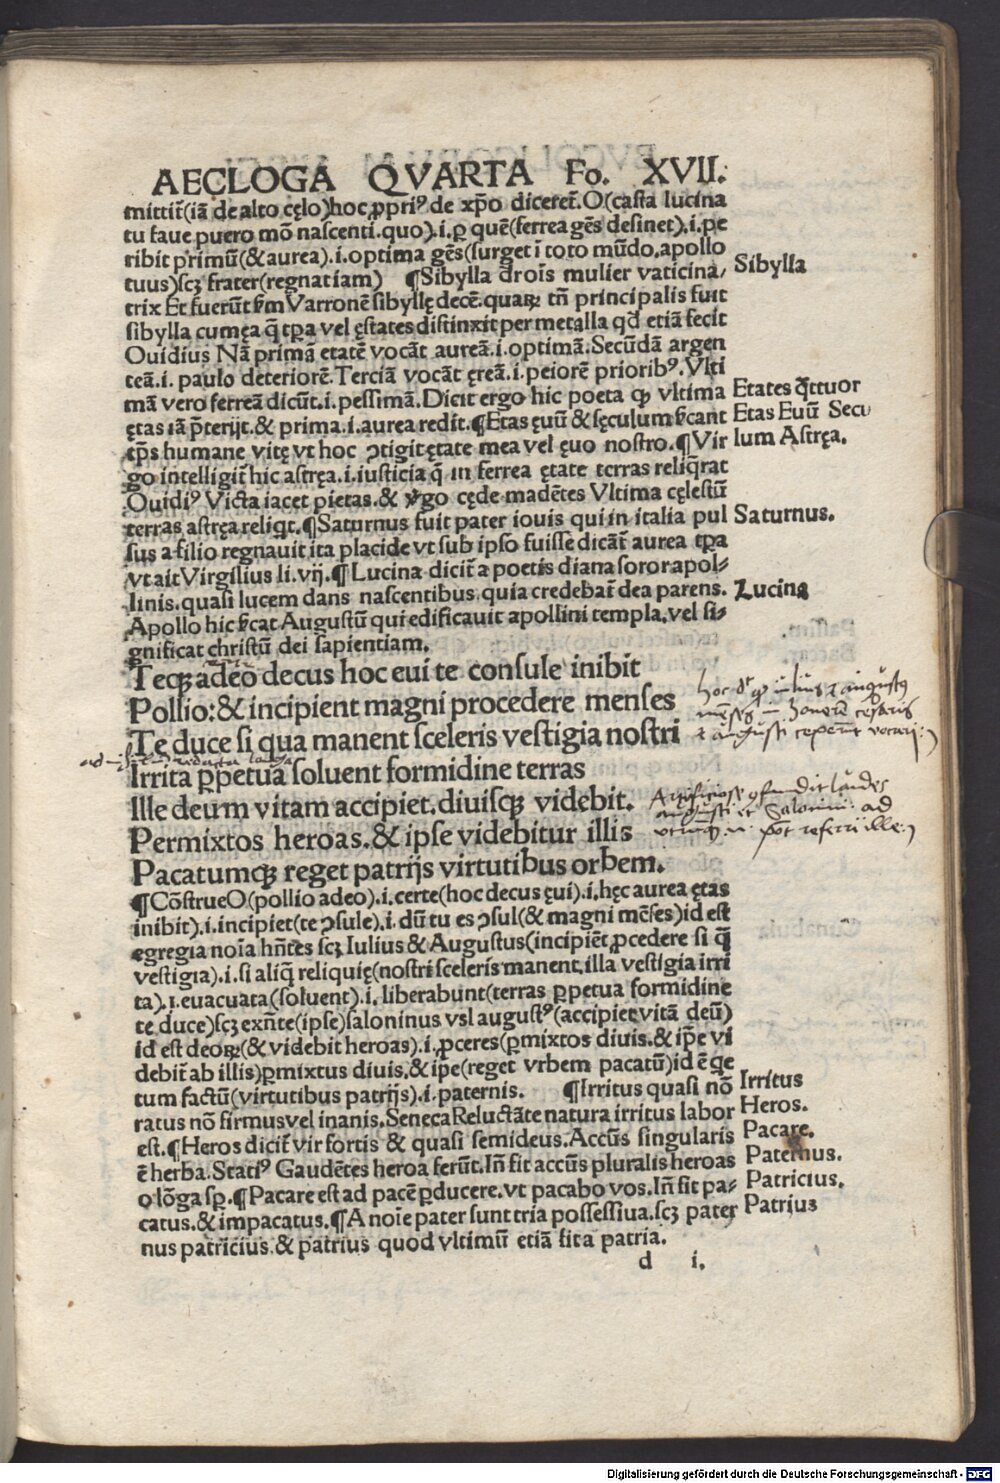 AECLOGA QVARTA Fo. XVII.
mittit̃(iã de alto cęlo)hoc ꝓpri⁹ de xp̃o diceret̃. O(casta lucina
tu faue puero mõ nascenti.quo).i.ꝑ quẽ(ferrea gẽs desinet).i.pe
ribit primũ(&aurea).i.optima gẽs(surget ĩ toto mũdo.apollo
tuus)scꝫ frater(regnat iam) ¶Sibylla dr̃ois mulier vaticina/
trix Et fuerũt ẜm Varronẽ sibyllę decẽ.quaꝝ tñ principalis fuit
sibylla cumęa q̃ tꝑa vel ęstates distinxit per metalla qđ etiã fecit
Ouidius Nã primã etatẽ vocãt aureã.i.optimã.Secũdã argen
teã.i. paulo deteriorẽ.Terciã vocãt ęreã.i.peiorẽ priorib⁹.Vlti
mã vero ferreã dicũt.i.pessimã.Dicit ergo hic poeta ꝙ vltima
ętas iã p̃terijt.& prima.i.aurea redit.¶Etas ęuũ & sęculum ẜcant
tꝑs humane vitę vt hoc ↄtigit ętate mea vel ęuo nostro.¶Vir
go intelligit̃ hic astręa.i.iusticia q̃ in ferrea ętate terras reliq̃rat
Ouidi⁹ Victa iacet pietas.& v̾go cęde madẽtes Vltima cęlestũ
terras astręa reliqt.¶Saturnus fuit pater iouis qui in italia pul
sus a filio regnauit ita placide vt sub ipso fuisse dicãt̃ aurea tꝑa
vt ait Virgilius li.vij.¶Lucina dicit̃ a poetis diana soror apol⸗
linis.quasi lucem dans nascentibus quia credebat̃ dea parens.
Apollo hic ẜcat Augustũ qui edificauit apollini templa.vel si⸗
gnificat christũ dei sapientiam.
Teqꝫ adeo decus hoc eui te consule inibit
Pollio:& incipient magni procedere menses
Te duce si qua manent sceleris vestigia nostri
Irrita ꝑpetua soluent formidine terras
Ille deum vitam accipiet.diuisqꝫ videbit.
Permixtos heroas.& ipse videbitur illis
Pacatumqꝫ reget patrijs virtutibus orbem.
¶CõstrueO(pollio adeo).i.certe(hoc decus ęui).i.hęc aurea ętas
inibit).i.incipiet(te ↄsule).i.dũ tu es ↄsul(& magni mẽses)id est
egregia noĩa hñtes scꝫ Iulius & Augustus(incipiẽt ꝓcedere si q̃
vestigia).i.si aliq̃ reliquię(nostri sceleris manent.illa vestigia irri
ta).i.euacuata(soluent).i.liberabunt(terras ꝑpetua formidine
te duce)scꝫ exñte(ipse)saloninus vsl august⁹(accipiet vitã deũ)
id est deoꝝ(& videbit heroas).i.ꝓceres(ꝑmixtos diuis.& ip̃e vi
debit̃ ab illis)ꝑmixtus diuis.& ip̃e(reget vrbem pacatũ)id ẽ q̃e
tum factũ(virtutibus patrijs).i.paternis. ¶Irritus quasi nõ
ratus nõ firmus vel inanis.Seneca Reluctãte natura irritus labor
est.¶Heros dicit̃ vir fortis & quasi semideus.Accũs singularis
ẽ herba.Stati⁹ Gaudẽtes heroa ferũt.Iñ fit accũs pluralis heroas
o lõga sꝑ.¶Pacare est ad pacẽ ꝑducere.vt pacabo vos.Iñ fit pa⸗
catus.& impacatus.¶A noĩe pater sunt tria possessiua.scꝫ pater
nus patricius & patrius quod vltimũ etiã fit a patria.
d i.
Sibylla
Etates q̃ttuor
Etas Euũ Secu
lum Astręa.
Saturnus.
Lucina
hoc
augusti ceperũt vocari
Artificiose ↄfundit laudes
augusti et Salonini: ad
utrũqꝫ põt referri ille:
Irritus
Heros.
Pacare.
Paternus.
Patricius.
Patrius
Digitalisierung gefördert durch die Deutsche Forschungsgemeinschaft - DFG